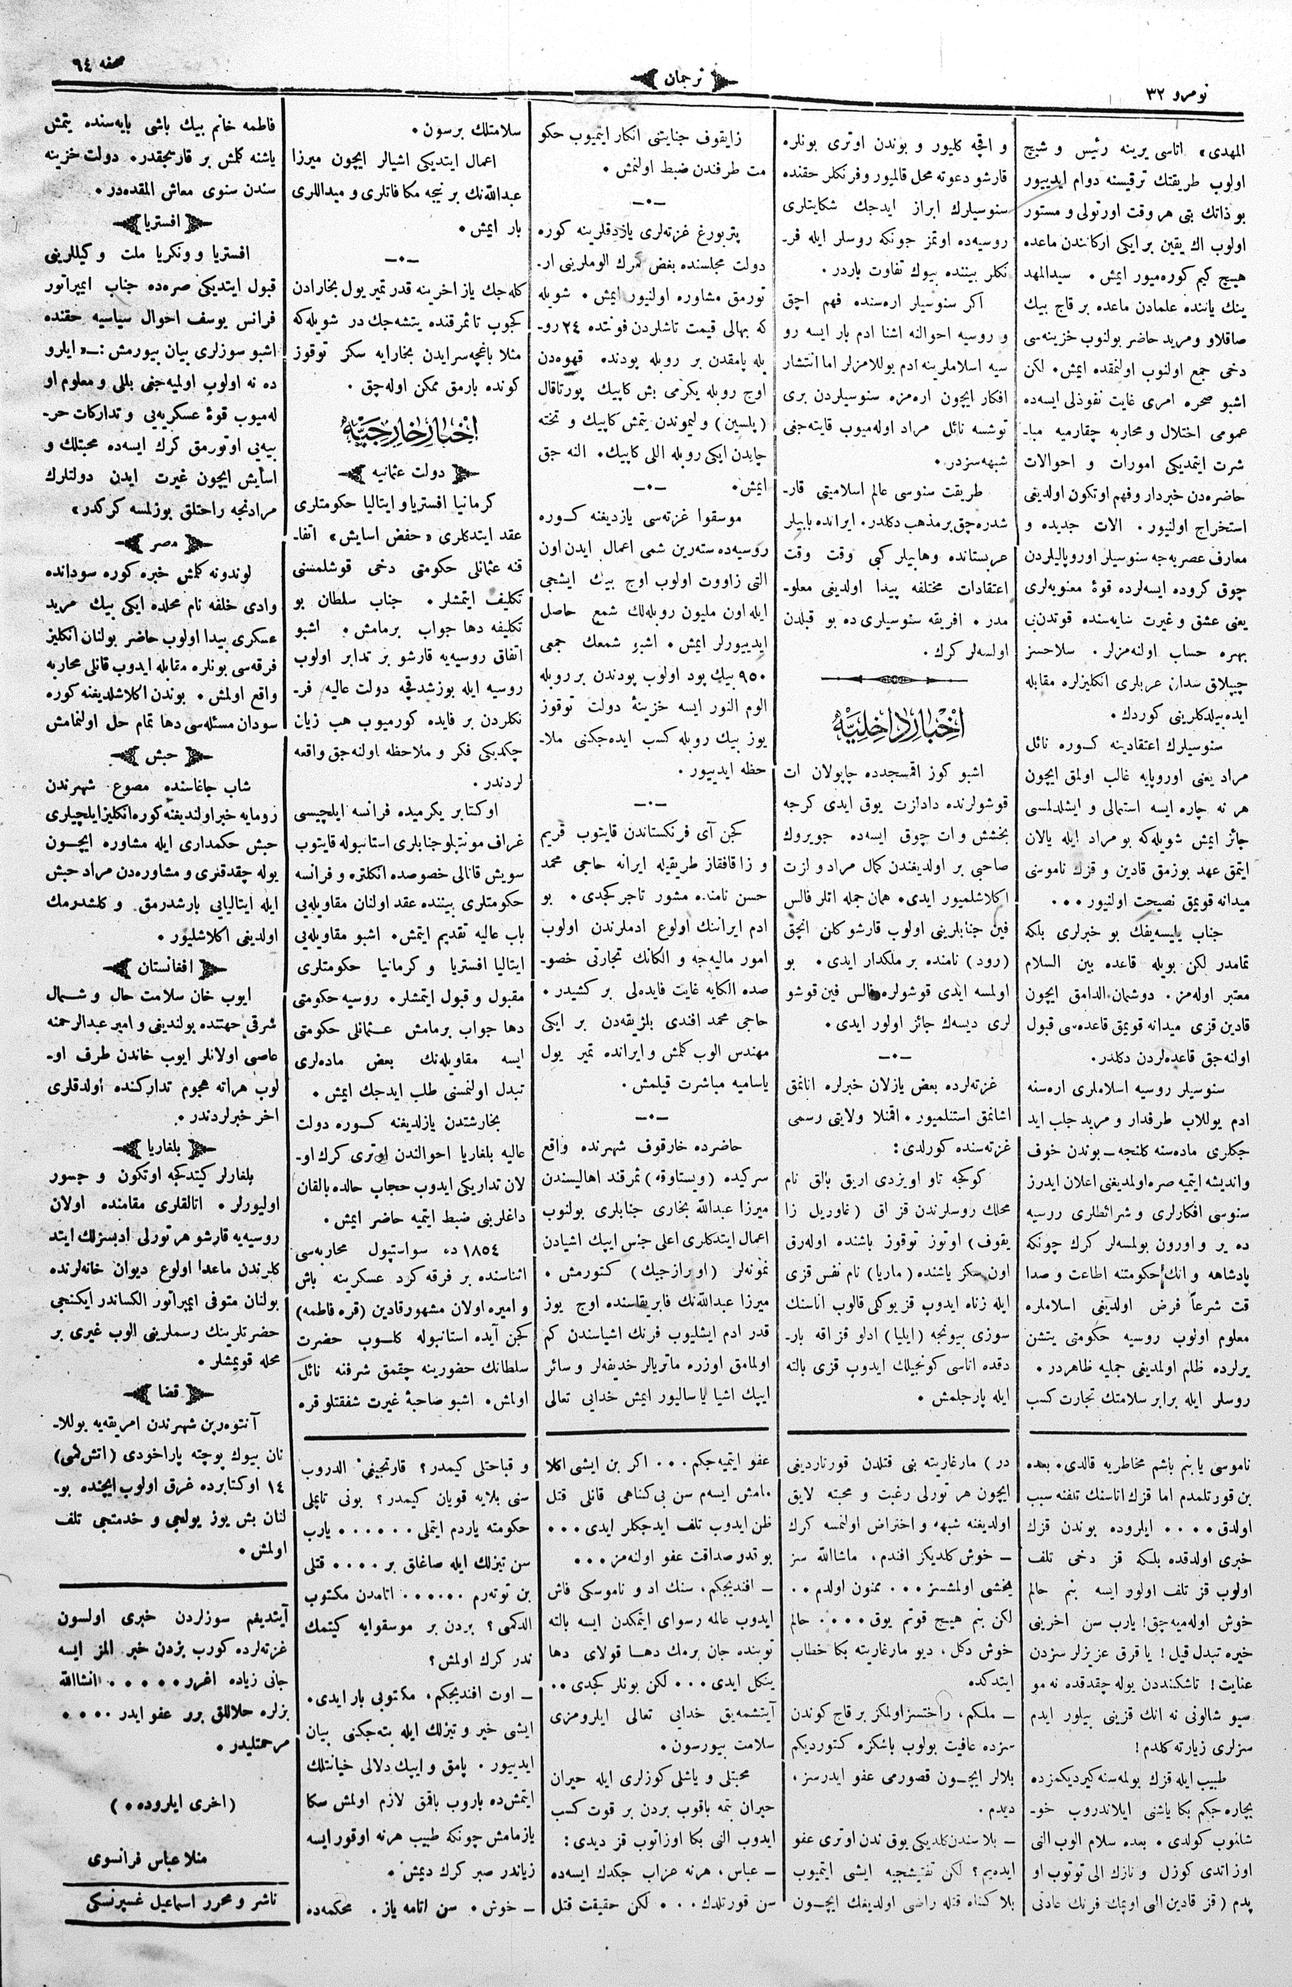 نومرو ٣٢
ترجمان
صحفه ٦٤
المهدی» اناسی یرینه رئیس و شیخ
اولوب طریقتك ترقیسنه دوام ایدییور
بو ذاتك بتی هر وقت اورتولی و مستور
اولوب اك یقین بر ایكی اركانندن ماعده
هیچ كیم كوره میور ایمش. سیدالمهد
ینك یاننده علمادن ماعده بر قاچ بیك
صاقلاو و مرید حاضر بولنوب خزینه سی
دخی جمع اولنوب اولنمقده ایمش. لكن
اشبو صحره امری غایت نفوذلی ایسه ده
عمومی اختلال و محاربه چقارمیه مبا-
شرت ایتمدیكی امورات و احوالات
حاضره دن خبردار و فهم اوتكون اولدیغی
استخراج اولنیور. الات جدیده و
معارف عصریه جه سنوسیلر اوروپالیلردن
چوق كروده ایسه لرده قوۀ معنویه لری
یعنی عشق و غیرت سایه سنده قوتدن بی
بهره حساب اولنه مزلر. سلاحسز
چیپلاق سدان عربلری انكلیزلره مقابله
ایده بیلدكلرینی كوردك.
سنوسیلرك اعتقادینه كوره نائل
مراد یعنی اوروپایه غالب اولمق ایچون
هر نه چاره ایسه استمالی و ایشدلمسی
جائز ایمش شویله كه بو مراد ایله یالان
ایتمق عهد بوزمق قادین و قزك ناموسی
میدانه قویمق نصیحت اولنیور...
جناب یلیسه یفك بو خبرلری بلكه
تمامدر لكن بویله قاعده بین السلام
معتبر اوله مز. دوشمان الدامق ایچون
قادین قزی میدانه قویمق قاعده سی قبول
اولنه جق قاعده لردن دكلدر.
سنوسیلر روسیه اسلاملری اره سنه
ادم یوللاب طرفدار و مرید جلب اید
جكلری ماده سنه كلنجه – بوندن خوف
و اندیشه ایتمیه صره اولمدیغی اعلان ایدرز
سنوسی افكارلری و شرائطلری روسیه
ده یر و اورون بولمسه لر كرك چونكه
پادشاهه و انك حكومتنه اطاعت و صدا
قت شرعاً فرض اولدیغی اسلاملره
معلوم اولوب روسیه حكومتی یتشن
یرلرده ظلم اولمدیغی جملیه ظاهردر.
روسلر ایله برابر سلامتك تجارت كسب
و اقچه كلیور و بوندن اوتری بونلره
قارشو دعوته محل قالمیور و فرنكلر حقنده
سنوسیلرك ابراز ایدجك شكایتلری
روسیه ده اوتمز چونكه روسلر ایله فر-
نكلر بیننده بیوك تفاوت باردر.
اكر سنوسیلر اره سنده فهم اچق
و روسیه احوالنه اشنا ادم بار ایسه رو
سیه اسلاملرینه ادم یوللامزلر اما انتشار
افكار ایچون اره مزه سنوسیلردن بری
توشسه نائل مراد اوله میوب قایته جغی
شبهه سزدر.
طریقت سنوسی عالم اسلامیتی قار-
شدره جق بر مذهب دكلدر. ایرانده بابیلر
عربستانده وهابیلر كبی وقت وقت
اعتقادات مختلفه پیدا اولدیغی معلو-
مدر. افریقه سنوسیلری ده بو قبلدن
اولسه لر كرك.
اخبار داخلیه
اشبو كوز اقمسجدده چاپولان ات
قوشولرنده دادازت یوق ایدی كرجه
بخشش و ات چوق ایسه ده جویروك
صاحبی بر اولدیغندن كمال مراد و لزت
اكلاشلمیور ایدی. همان جمله اتلر فالس
فین جنابلرینی اولوب قارشو كلن انچق
(رود) نامنده بر ملكدار ایدی. بو
اولمسه ایدی قوشولره فالس فین قوشو
لری دیسه ك جائز اولور ایدی.
–•–
غزته لرده بعض یازلان خبرلره انانمق
اشانمق استنلمیور. اقمنلا ولایتی رسمی
غزته سنده كورلدی:
كوكجه تاو اویزدی اریق بالق نام
محلك روسلرندن قزاق (غاوریل زا
یقوف) اوتوز توقوز یاشنده اوله رق
اون سكز یاشنده (ماریا) نام نفس قزی
ایله زناه ایدوب قز یوكلی قالوب اناسنك
سوزی بیونجه (ایلیا) ادلو قزاقه بار-
دقده اناسی كونجیلك ایدوب قزی بالته
ایله پارجلمش.
زایقوف جنایتنی انكار ایتمیوب حكو
مت طرفندن ضبط اولنمش.
–•–
پتربورغ غزته لری یازدقلرینه كوره
دولت مجلسنده بعض كمرك الوملرینی ار-
تورمق مشاوره اولنیور ایمش. شویله
كه بهالی قیمت تاشلردن فوتنده ٢٤ رو-
بله پامقدن بر روبله پودنده قهوه دن
اوج روبله یكرمی بش كاپیك پورتاقال
(پلسین) و لیموندن یتمش كاپیك و تخته
چایدن ایكی روبله اللی كاپیك. النه جق
ایمش.
–•–
موسقوا غزته سی یازدیغنه كوره
روسیه ده سته رین شمعی اعمال ایدن اون
التی زاووت اولوب اوج بیك ایشجی
ایله اون ملیون روبله لك شمع حاصل
ایدییورلر ایمش. اشبو شمعك جمعی
٩٥٠ بیك پود اولوب پودندن بر روبله
الوم النور ایسه خزینۀ دولت توقوز
یوز بیك روبله كسب ایده جكنی ملا-
حظه ایدییور.
–•–
كچن آی فرنكستاندن قایتوب قریم
و زاقافقاز طریقیله ایرانه حاجی محمد
حسن نامنده مشور تاجر كچدی. بو
ادم ایرانك اولوغ ادملرندن اولوب
امور مالیه جه و الكانك تجارتی خصو-
صده الكایه غایت فایده لی بر كشیدر.
حاجی محمد افندی بلژیقه دن بر ایكی
مهندس الوب كلمش و ایرانده تمیر یول
یاسامیه مباشرت قیلمش.
–•–
حاضرده خارقوف شهرنده واقع
سركیده (ویستاوقه) ثمرقند اهالیسندن
میرزا عبدالله بخاری جنابلری بولنوب
اعمال ایتدكلری اعلی جنس ایپك اشیادن
نمونه لر (اورازجیك) كتورمش.
میرزا عبدالله نك فابریقاسنده اوج یوز
قدر ادم ایشلیوب فرنك اشیاسندن كم
اولمامق اوزره ماتریالر خدیفه لر و سائر
ایپك اشیا یاسالیور ایمش خدایی تعالی
سلامتلك برسون.
اعمال ایتدیكی اشیالر ایچون میرزا
عبدالله نك بر نیچه مكافاتلری و میداللری
بار ایمش.
–•–
كله جك یاز اخرینه قدر تمیر یول بخارادن
كچوب تا ثمرقنده یتشه جك در شویله كه
مثلا باغچه سرایدن بخارایه سكز توقوز
كونده بارمق ممكن اوله جق.
اخبار خارجیه
دولت عثمانیه
كرمانیا افستریا و ایتالیا حكومتلری
عقد ایتدكلری «حفض اسایش» اتفا-
قنه عثمانلی حكومتی دخی قوشلمسنی
تكلیف ایتمشلر. جناب سلطان بو
تكلیفه دها جواب برمامش. اشبو
اتفاق روسیه یه قارشو بر تدابر اولوب
روسیه ایله بوزشدقچه دولت عالیه فر-
نكلردن بر فایده كورمیوب هب زیان
چكدیكی فكر و ملاحظه اولنه جق واقعه
لردندر.
اوكتابر یكرمیده فرانسه ایلچیسی
غراف مونتبلو جنابلری استانبوله قایتوب
سویش قانالی خصوصده انكلتره و فرانسه
حكومتلری بیننده عقد اولنان مقاوله یی
باب عالیه تقدیم ایتمش. اشبو مقاوله یی
ایتالیا افستریا و كرمانیا حكومتلری
مقبول و قبول ایتمشلر. روسیه حكومتی
دها جواب برمامش عثمانلی حكومتی
ایسه مقاوله نك بعض ماده لری
تبدل اولنمسنی طلب ایدجك ایمش.
بخارشتدن یازلدیغنه كوره دولت
عالیه بلغاریا احوالندن اوتری كرك او-
لان تداریكی ایدوب حجاب حالده بالقان
داغلرینی ضبط ایتمیه حاضر ایمش.
١٨٥٤ ده سواستپول محاربه سی
اثناسنده بر فرقه كرد عسكرینه باش
و امیره اولان مشهور قادین (قره فاطمه)
كچن آیده استانبوله كلوب حضرت
سلطانك حضورینه چقمق شرفنه نائل
اولمش. اشبو صاحبۀ غیرت شفقتلو قره
فاطمه خانم بیك باشی پایه سنده یتمش
یاشنه كلمش بر قارتجقدر. دولت خزینه
سندن سنوی معاش المقده در.
افستریا
افستریا و ونكریا ملت و كیللرینی
قبول ایتدیكی صره ده جناب ایمپراتور
فرانس یوسف احوال سیاسیه حقنده
اشبو سوزلری بیان بیورمش:– «ایلرو
ده نه اولوب اولمیه جغی بللی و معلوم او
له میوب قوۀ عسكریه یی و تداركات حر-
بیه یی اوتورمق كرك ایسه ده محبتلك و
اسایش ایچون غیرت ایدن دولتلرك
مرادنجه راحتلق بوزلمسه كركدر»
مصر
لوندونه كلمش خبره كوره سودانده
وادی خلفه نام محلده ایكی بیك مرید
عسكری پیدا اولوب حاضر بولنان انكلیز
فرقه سی بونلره مقابله ایدوب قانلی محاربه
واقع اولمش. بوندن اكلاشلدیغنه كوره
سودان مسئله سی دها تمام حل اولنمامش
حبش
شاب جاغاسنده مصوع شهرندن
زومایه خبر اولندیغنه كوره انكلیز ایلچیلری
حبش حكمداری ایله مشاوره ایچون
یوله چقدقنری و مشاوره دن مراد حبش
ایله ایتالیایی بارشدرمق و كلشدرمك
اولدیغی اكلاشلیور.
افغانستان
ایوب خان سلامت حال و شمال
شرقی جهتنده بولندیغی و امیر عبدالرحمنه
عاصی اولانلر ایوب خاندن طرف او-
لوب هراته هجوم تداركنده اولدقلری
اخر خبرلردندر.
بلغاریا
بلغارلر كیتدكجه اوتكون و جسور
اولیورلر. اتالقلری مقامنده اولان
روسیه یه قارشو هر تورلی ادبسزلك ایتد
كلرندن ماعدا اولوغ دیوان خانه لرنده
بولنان متوفی ایمپراتور الكساندر ایكنجی
حضرتلرینك رسملرینی الوب غیری بر
محله قویمشلر.
قضا
آنتوه رپن شهرندن امریقه یه یوللا-
نان بیوك پوچته پاراخودی (اتش كمی)
١٤ اوكتابرده غرق اولوب ایچنده بو-
لنان بش یوز یولجی و خدمتجی تلف
اولمش.
ناموسی یا بنم باشم مخاطریه قالدی. بعده
بن قورتلمدم اما قزك اناسنك تلفنه سبب
اولدق.... ایلروده بوندن قزك
خبری اولدقده بلكه قز دخی تلف
اولوب قز تلف اولور ایسه بنم حالم
خوش اوله میه جق! یارب سن اخرینی
خیره تبدل قیل! یا قرق عزیزلر سزدن
عنایت! تاشكنددن یوله چقدقده نه مو
سیو شالونی نه انك قزینی بیلور ایدم
سزلری زیارته كلدم!
طبیب ایله قزك بولمه سنه كیردیكمزده
بچاره جكم بكا یاشنی ایلاندروب خو-
شلنوب كولدی. بعده سلام الوب النی
اوزاتدی كوزل و نازك الی توتوب او
پدم (قز قادین الی اوپمك فرنك عادتی
در) مارغاریته بنی قتلدن قورتاردیغی
ایچون هر تورلی رغبت و محبته لایق
اولدیغنه شبهه و اختراض اولنمسه كرك
– خوش كلدیكز افندم، ماشاالله سز
یخشی اولمشسز... ممنون اولدم..
لكن بنم هیچ قوتم یوق.... حالم
خوش دكل، دیو مارغاریته بكا خطاب
ایتدكده
– ملكم، راختسز اولمكز بر قاچ كوندن
سزده عافیت بولوب باشكزه كتوردیكم
بلالر ایچون قصورمی عفو ایدرسز،
دیدم.
– بلا سندن كلدیكی یوق ندن اوتری عفو
ایده یم؟ لكن تفتیشجیه ایشی ایتمیوب
بلا كناه قتله راضی اولدیغك ایچون
عفو ایتمیه جكم... اكر بن ایشی اكلا
مامش ایسه م سن بی كناهی قاتلی قتل
ظن ایدوب تلف ایدجكلر ایدی...
بو تدو صداقت عفو اولنه مز...
– افندیجكم، سنك اد و ناموسكی فاش
ایدوب عالمه رسوای ایتمكدن ایسه بالته
توبنده جان برمك دها قولای دها
ینكل ایدی... لكن بونلر كچدی..
آیتشمه یق خدایی تعالی ایلرومزی
سلامت بیورسون.
محبتلی و یاشلی كوزلری ایله حیران
حیران بتمه باقوب بردن بر قوت كسب
ایدوب النی بكا اوزاتوب قز دیدی:
– عباس، هرنه عزاب چكدك ایسه ده
سن قورتلدك... لكن حقیقت قتل
و قباحتلی كیمدر؟ قارتجیغی الدروب
سنی بلایه قویان كیمدر؟ بونی تاپملی
حكومته یاردم ایتملی...... یارب
سن تیزلك ایله صاغاق بر.... قتلی
بن توته رم...... اتامدن مكتوب
الدكمی؟ بردن بر موسقوایه كیتمك
ندر كرك اولمش؟
– اوت افندیجكم، مكتوبی بار ایدی.
ایشی خیر و تیزلك ایله بته جكنی بیان
ایدییور. پامق و ایپك دلالی خیانتلك
ایتمش ده باروب باقمق لازم اولمش سكا
یازمامش چونكه طبیب هرنه اوقور ایسه
زیاندر صبر كرك دیمش.
– خوش. سن اتامه یاز. محكمه ده
آیتدیغم سوزلردن خبری اولسون
غزته لرده كورب بزدن خبر المز ایسه
جانی زیاده اغرر...... انشاالله
بزلره حلاللق برر عفو ایدر....
مرحمتلیدر.
(اخری ایلروده.)
منلا عباس فرانسوی
ناشر و محرر اسماعیل غسپرنسكی